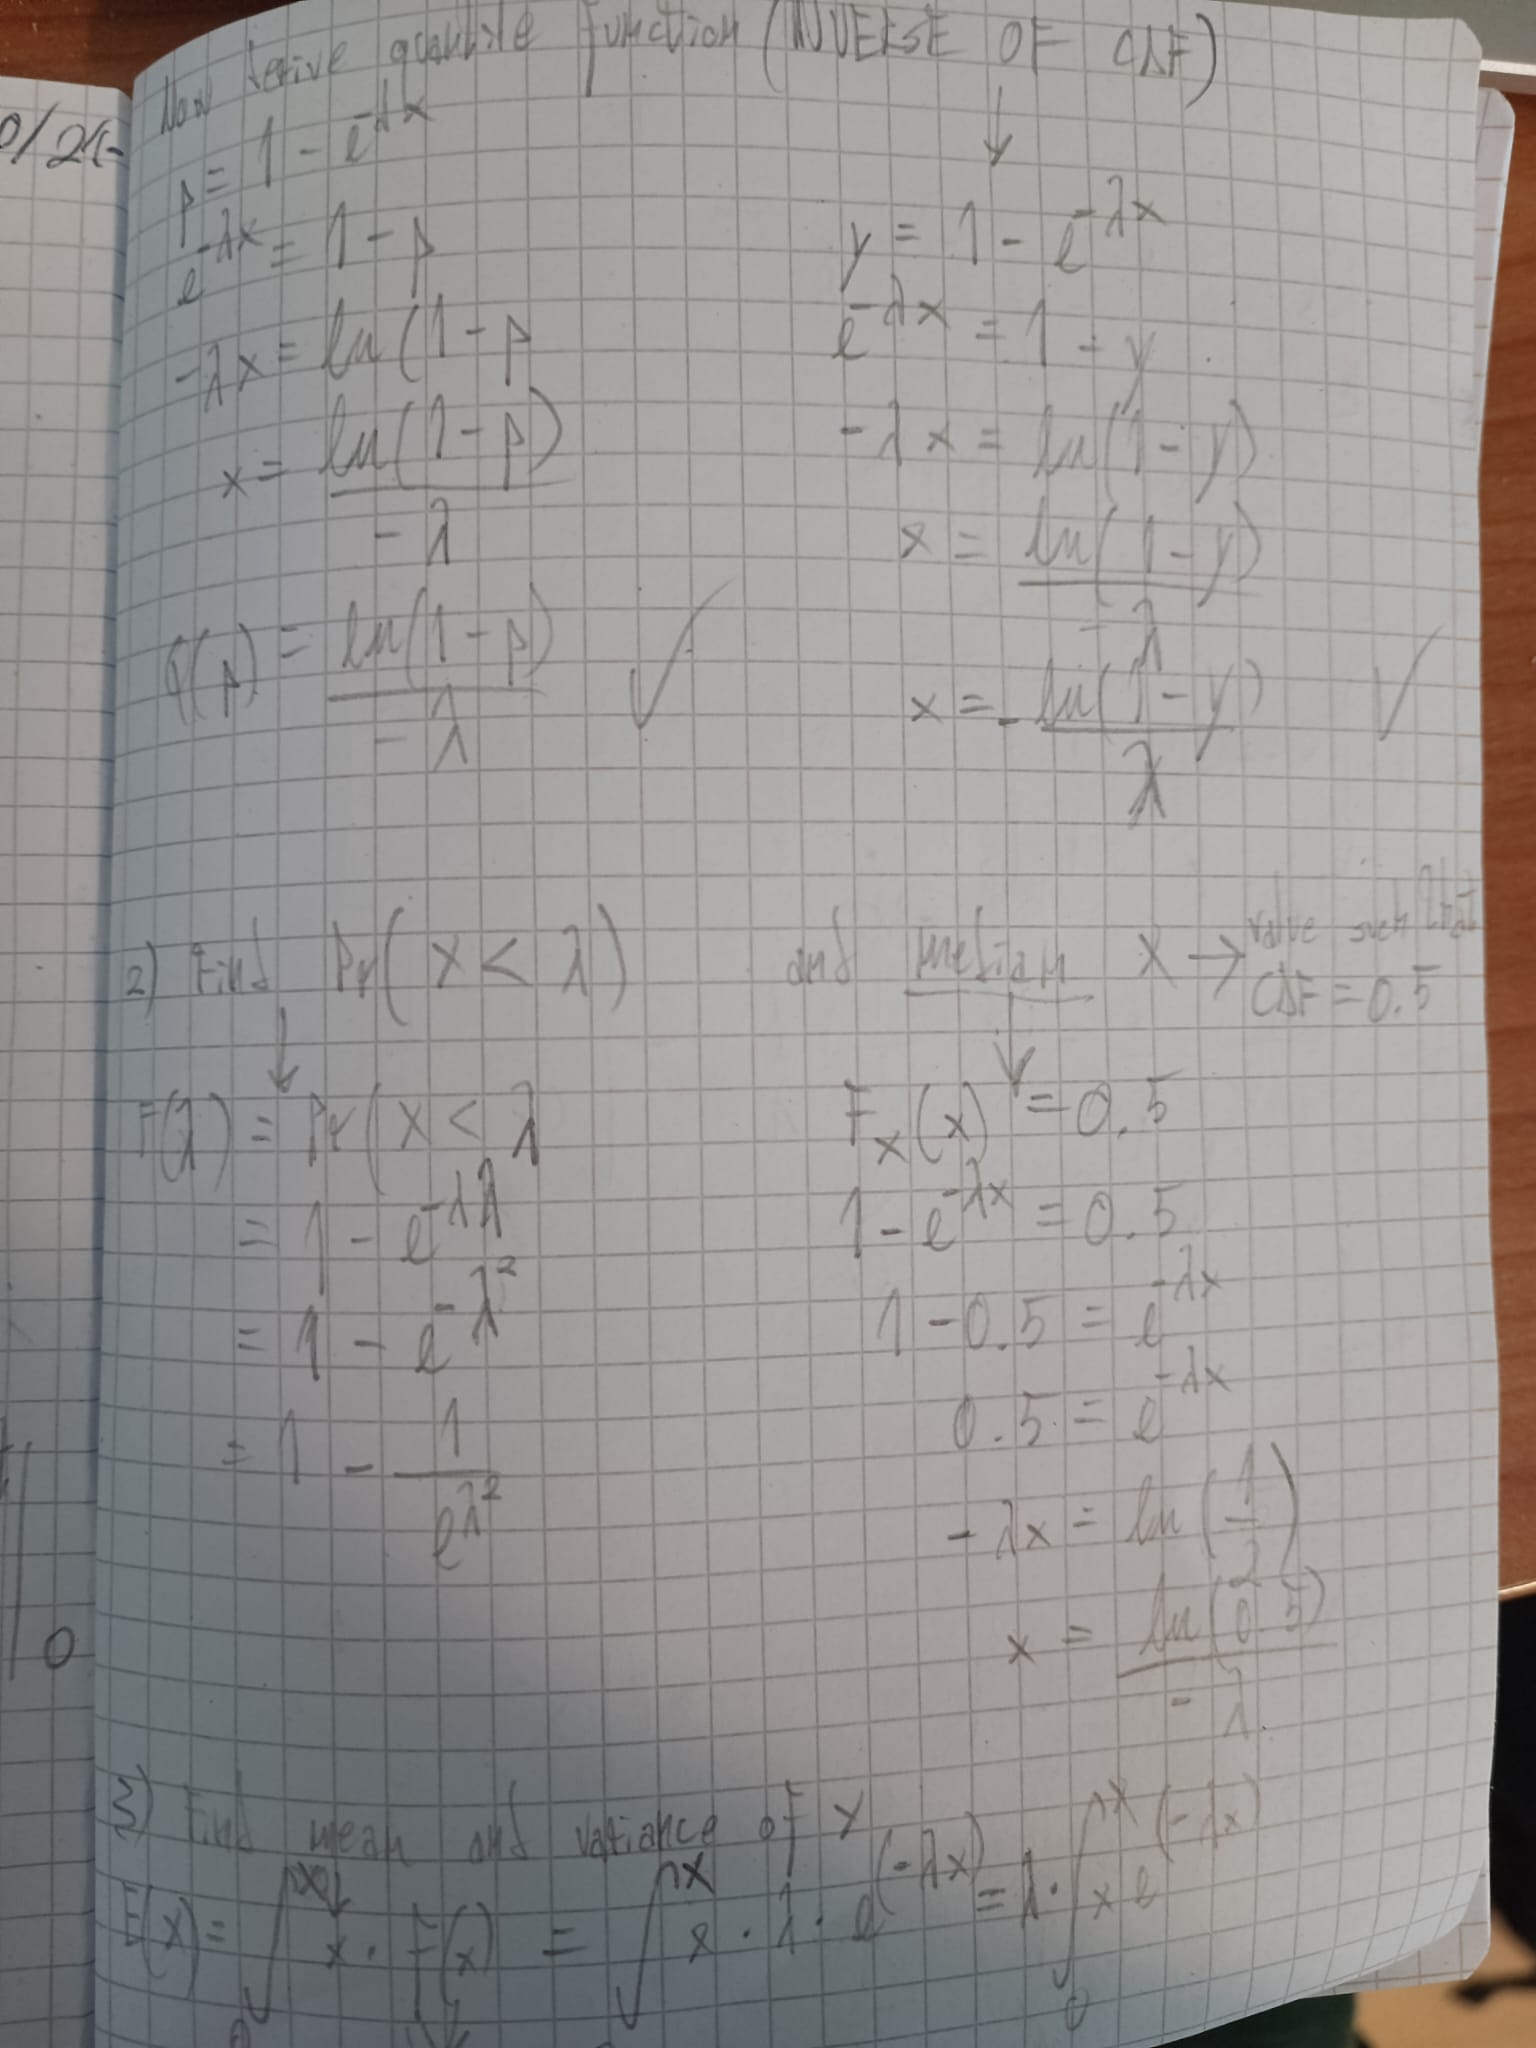 Now derive quantile function (INVERSE OF CDF)
p = 1 - e^-λx
e^-λx = 1 - p
-λx = ln(1-p
x = ln(1-p) / -λ
Q(p) = ln(1-p) / -λ ✓
↓
y = 1 - e^-λx
e^-λx = 1 - y
-λx = ln(1-y)
x = ln(1-y) / -λ
x = - ln(1-y) / λ ✓
2) Find Pr(X < λ) and median X → value such that
CDF = 0.5
↓
F(λ) = Pr(X < λ
= 1 - e^-λλ
= 1 - e^-λ²
= 1 - 1 / e^λ²
↓
F_X(x) = 0.5
1 - e^-λx = 0.5
1 - 0.5 = e^-λx
0.5 = e^-λx
-λx = ln(1/2)
x = ln(0.5) / -λ
3) Find mean and variance of X
E(x) = ∫ x · f(x) = ∫ x · λ · e^(-λx) = λ · ∫ x e^(-λx)
0/21-
0